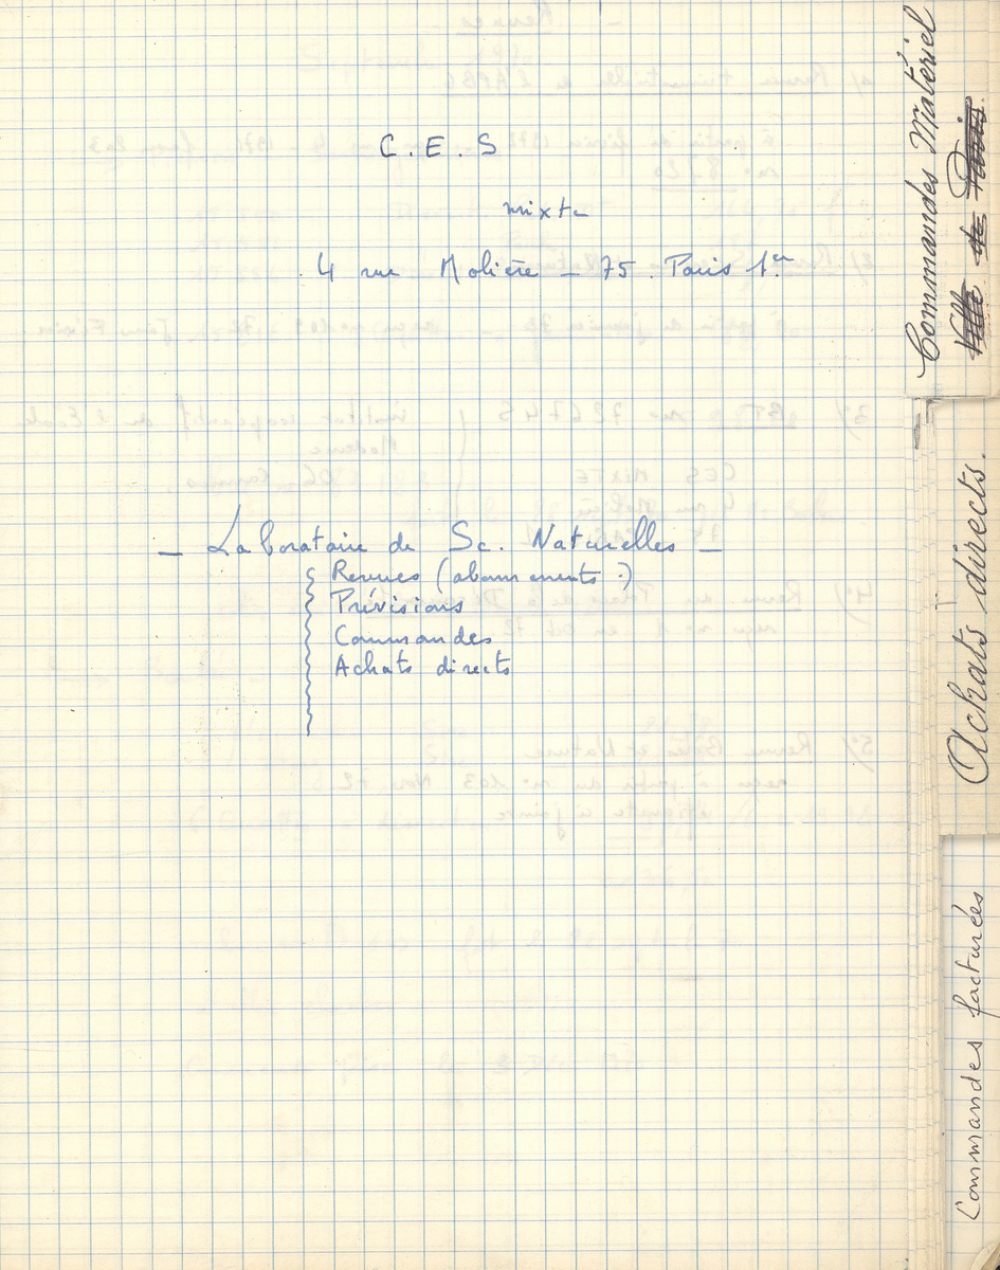 C.E.S
mixte
4 rue Molière - 75. Paris 1er
- Laboratoire de Sc. Naturelles -
Revues (abonnements :)
Prévisions
Commandes
Achats directs
Commandes Matériel
Ville de Paris.
Achats directs.
Commandes facturées